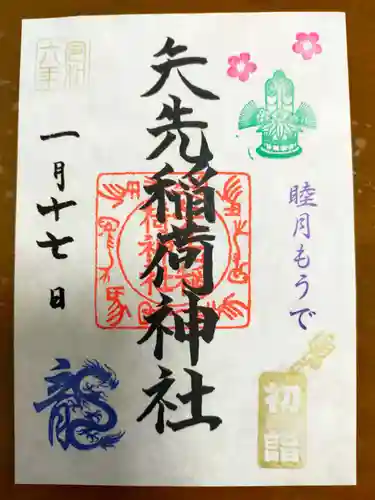 矢先稲荷神社
睦月もうで
初詣
一月十七日
龍